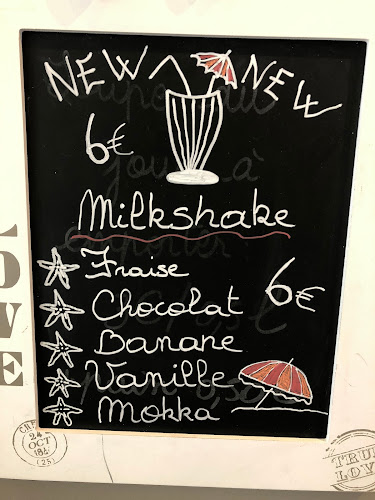 NEW NEW
6€
Milkshake
Fraise
6€
Chocolat
Banane
Vanille
Mokka
24
OCT
(25)
TRUE
LOVE